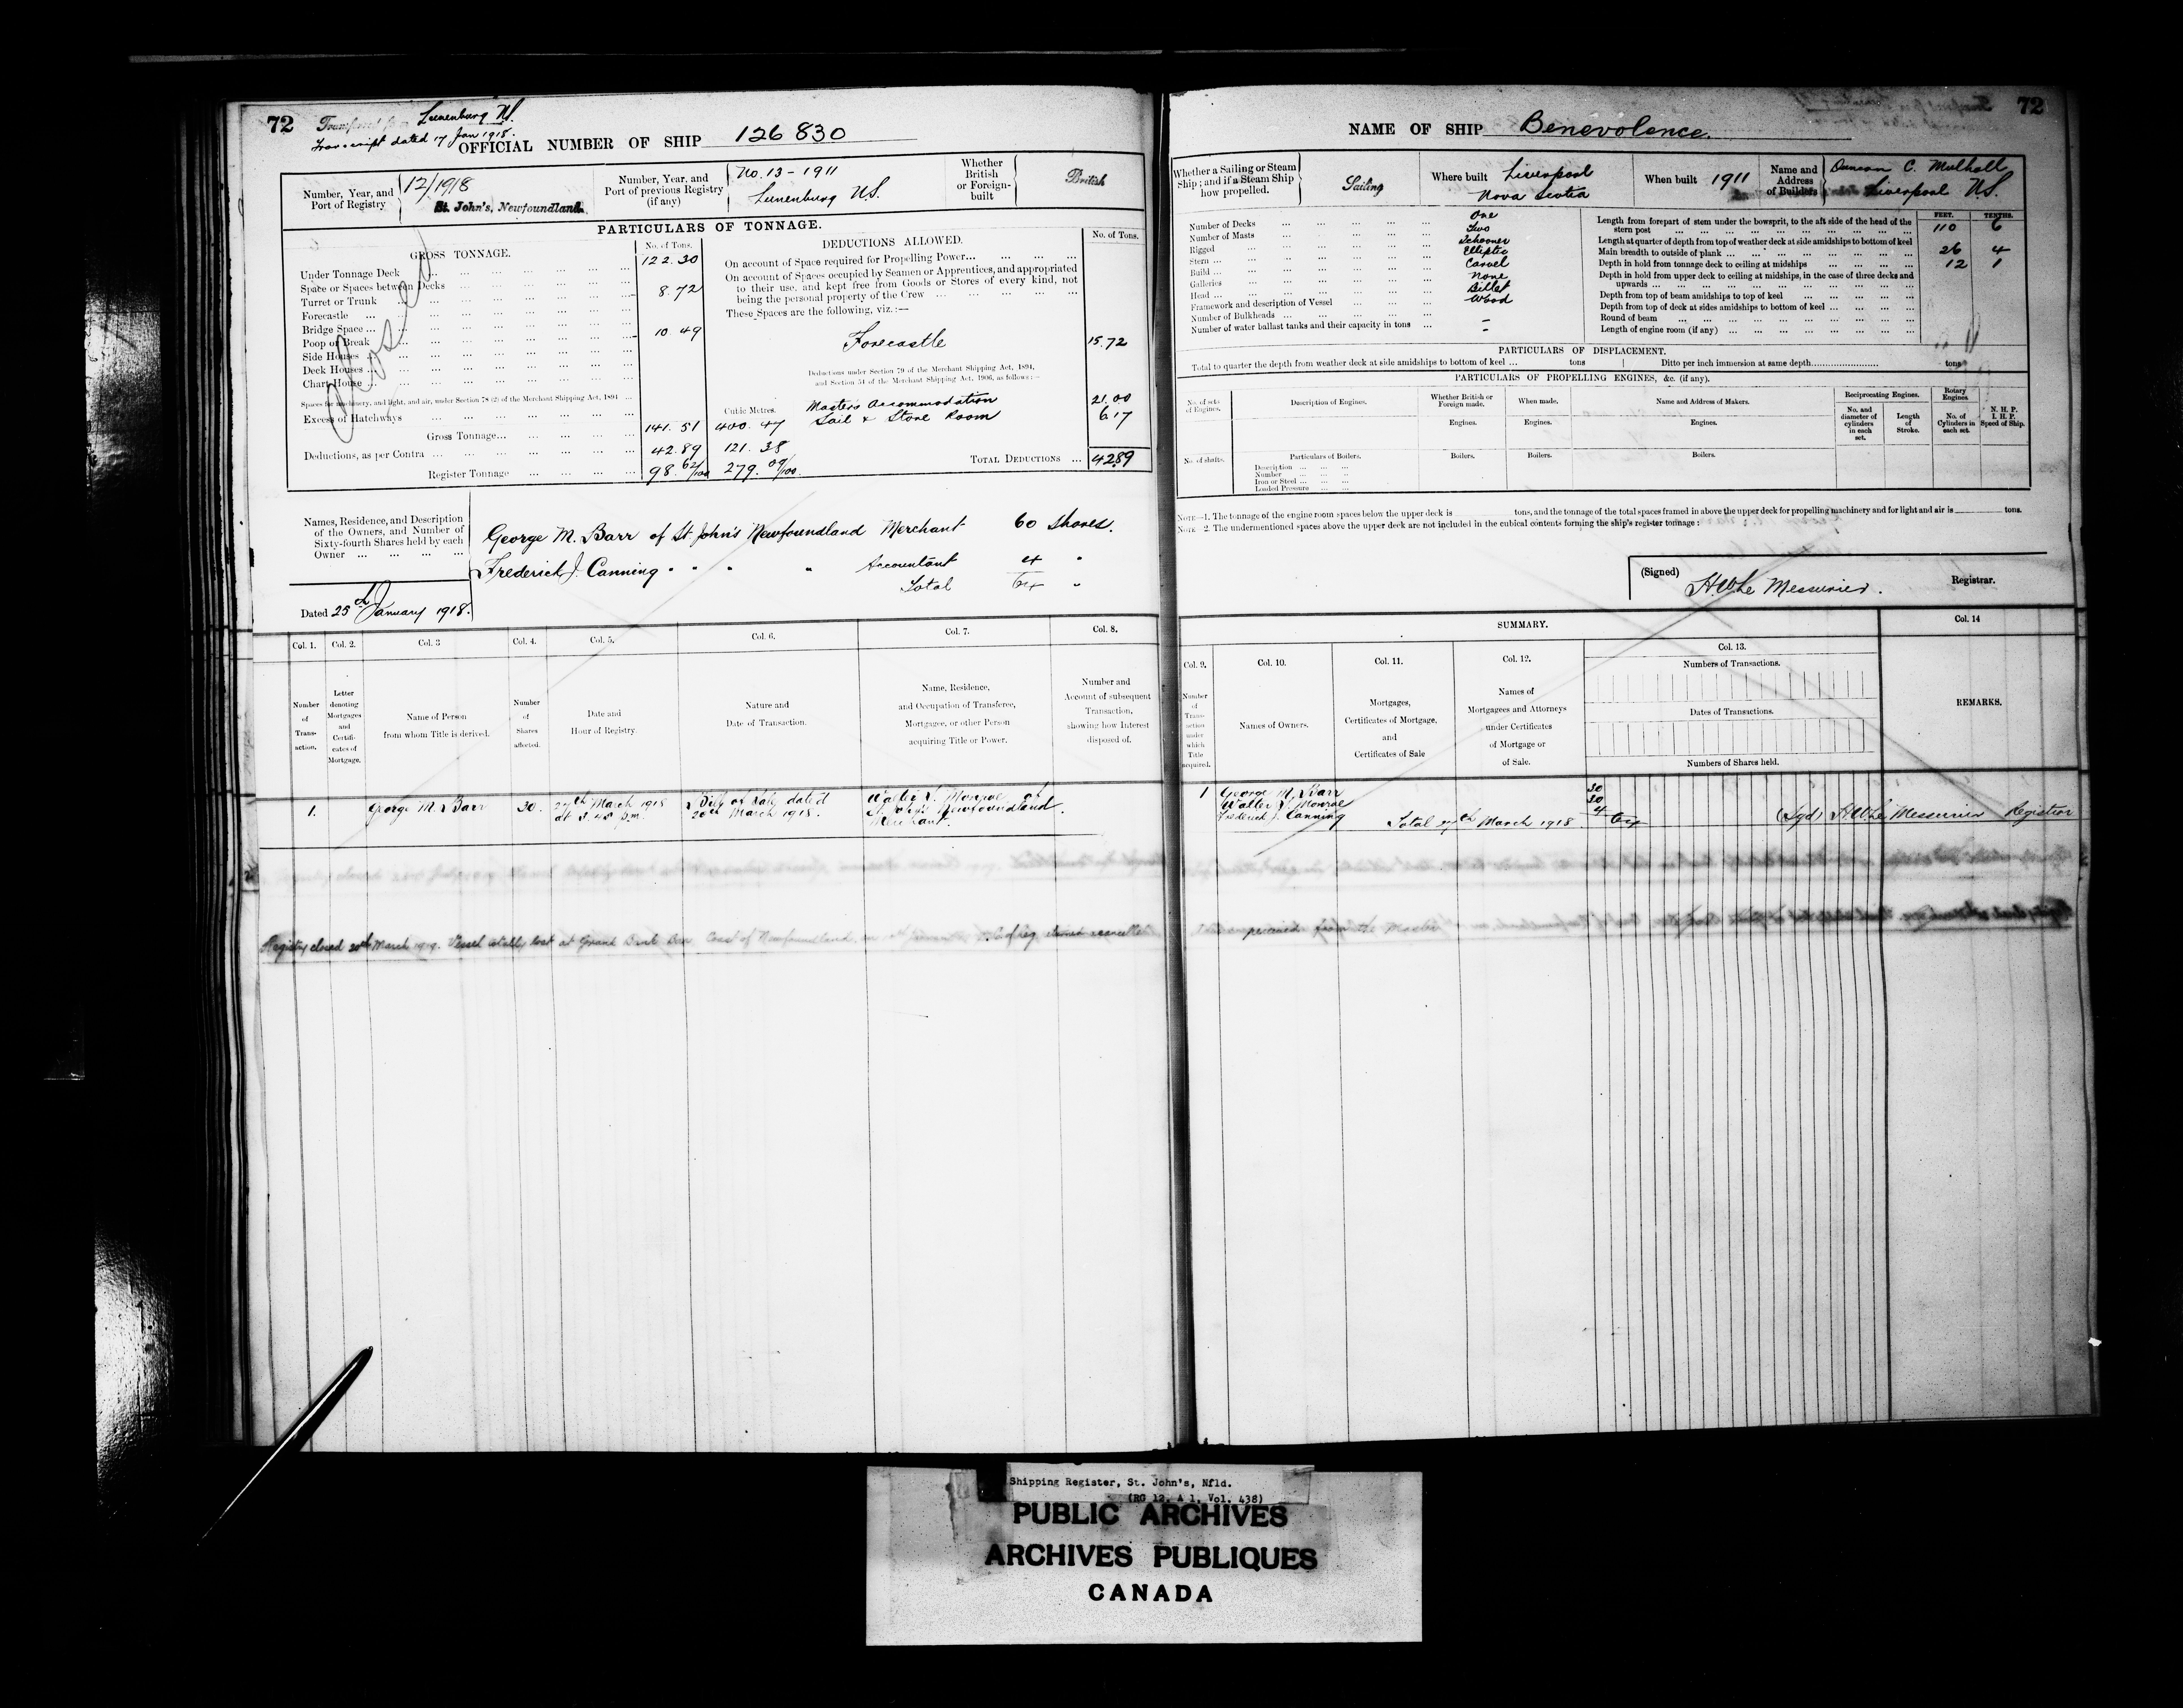 72
Lunenburg N.S.
Transcript dated 17 Jan 1918.
OFFICIAL NUMBER OF SHIP 126830
Number, Year, and Port of Registry
12/1918
St. John's, Newfoundland.
Number, Year, and Port of previous Registry (if any)
No. 13 - 1911
Lunenburg N.S.
Whether British or Foreign-built
British
PARTICULARS OF TONNAGE.
GROSS TONNAGE.
No. of Tons.
Under Tonnage Deck ... 122.30
Space or Spaces between Decks
Turret or Trunk 8.72
Forecastle
Bridge Space
Poop or Break 10 49
Side Houses
Deck Houses
Chart House
Spaces for machinery, and light, and air, under Section 78 (2) of the Merchant Shipping Act, 1894
Excess of Hatchways
Gross Tonnage 141.51 400.47
Deductions, as per Contra 42.89 121.38
Register Tonnage 98.62/100 279.09/100
Cubic Metres.
Closed
DEDUCTIONS ALLOWED.
No. of Tons.
On account of Space required for Propelling Power
On account of Spaces occupied by Seamen or Apprentices, and appropriated
to their use, and kept free from Goods or Stores of every kind, not
being the personal property of the Crew
These Spaces are the following, viz.:—
Forecastle 15.72
Deductions under Section 79 of the Merchant Shipping Act, 1894,
and Section 54 of the Merchant Shipping Act, 1906, as follows:—
Masters Accommodation 21.00
Sail & Store Room 6.17
TOTAL DEDUCTIONS ... 42.89
Names, Residence, and Description
of the Owners, and Number of
Sixty-fourth Shares held by each
Owner
George M. Barr of St John's Newfoundland Merchant 60 Shares.
Frederick J. Canning " " " " Accountant 4 "
Total 64 "
Dated 25th January 1918.
Col. 1. Col. 2. Col. 3 Col. 4. Col. 5. Col. 6. Col. 7. Col. 8.
Number of Transaction.
Letter denoting Mortgages and Certificates of Mortgage.
Name of Person from whom Title is derived.
Number of Shares affected.
Date and Hour of Registry.
Nature and Date of Transaction.
Name, Residence, and Occupation of Transferee, Mortgagee, or other Person acquiring Title or Power.
Number and Account of subsequent Transaction, showing how Interest disposed of.
1. George M. Barr 30. 27th March 1918 at 3.45 p.m. Bill of Sale dated 20th March 1918. Walter S. Monroe of St John's Newfoundland Merchant.
Registry closed 20th March 1919. Vessel totally lost at Grand Bank Bar, Coast of Newfoundland,
72
NAME OF SHIP Benevolence.
Whether a Sailing or Steam Ship; and if a Steam Ship how propelled.
Sailing
Where built Liverpool Nova Scotia
When built 1911
Name and Address of Builders
Duncan C. Mulhall
Liverpool N.S.
Number of Decks One
Number of Masts Two
Rigged Schooner
Stern Elliptic
Build Carvel
Galleries None
Head Billet
Framework and description of Vessel Wood
Number of Bulkheads –
Number of water ballast tanks and their capacity in tons –
FEET. TENTHS.
Length from forepart of stem under the bowsprit, to the aft side of the head of the
stern post 110 6
Length at quarter of depth from top of weather deck at side amidships to bottom of keel
Main breadth to outside of plank 26 4
Depth in hold from tonnage deck to ceiling at midships 12 1
Depth in hold from upper deck to ceiling at midships, in the case of three decks and
upwards
Depth from top of beam amidships to top of keel
Depth from top of deck at sides amidships to bottom of keel
Round of beam
Length of engine room (if any)
PARTICULARS OF DISPLACEMENT.
Total to quarter the depth from weather deck at side amidships to bottom of keel ... tons Ditto per inch immersion at same depth tons
PARTICULARS OF PROPELLING ENGINES, &c. (if any).
No. of sets of Engines.
Description of Engines.
Whether British or Foreign made.
When made.
Name and Address of Makers.
Reciprocating Engines.
Rotary Engines
No. and diameter of cylinders in each set.
Length of Stroke.
No. of Cylinders in each set.
N. H. P.
I. H. P.
Speed of Ship.
Engines. Engines. Engines.
No. of shafts.
Particulars of Boilers. Boilers. Boilers. Boilers.
Description
Number
Iron or Steel
Loaded Pressure
NOTE—1. The tonnage of the engine room spaces below the upper deck is tons, and the tonnage of the total spaces framed in above the upper deck for propelling machinery and for light and air is tons.
NOTE—2. The undermentioned spaces above the upper deck are not included in the cubical contents forming the ship's register tonnage:
(Signed) H.W. Le Messurier. Registrar.
SUMMARY.
Col. 9. Col. 10. Col. 11. Col. 12. Col. 13. Col. 14
Number of Transaction under which Title acquired.
Names of Owners.
Mortgages, Certificates of Mortgage, and Certificates of Sale
Names of Mortgagees and Attorneys under Certificates of Mortgage or of Sale.
Numbers of Transactions.
Dates of Transactions.
Numbers of Shares held.
REMARKS.
1 George M. Barr 30
Walter S. Monroe 30
Frederick J. Canning 4
Total 27th March 1918 64 (Sgd) H.W. Le Messurier Registrar
received from the Master
Shipping Register, St. John's, Nfld.
(RG 12, A 1, Vol. 438)
PUBLIC ARCHIVES
ARCHIVES PUBLIQUES
CANADA